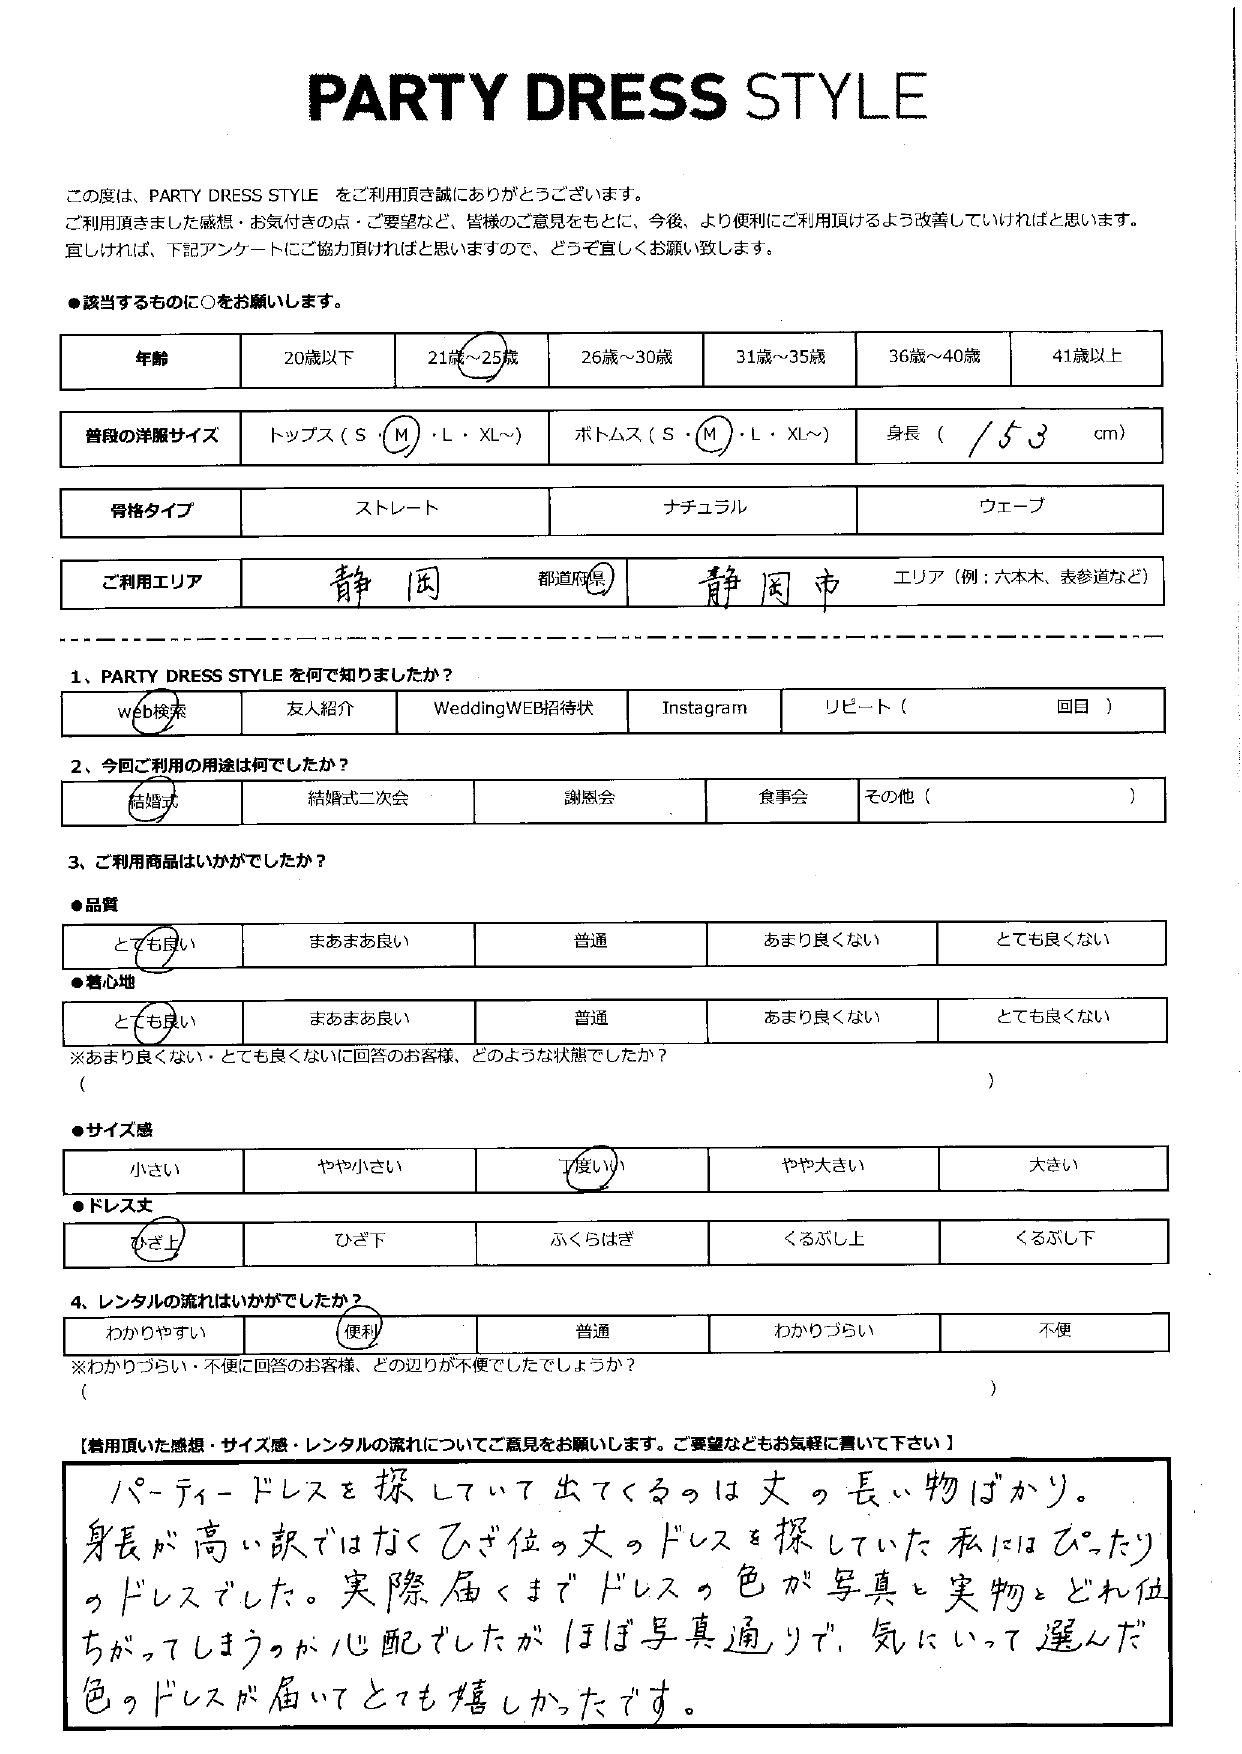 PARTY DRESS STYLE
この度は、PARTY DRESS STYLE をご利用頂き誠にありがとうございます。
ご利用頂きました感想・お気付きの点・ご要望など、皆様のご意見をもとに、今後、より便利にご利用頂けるよう改善していければと思います。
宜しければ、下記アンケートにご協力頂ければと思いますので、どうぞ宜しくお願い致します。
●該当するものに○をお願いします。
年齢 20歳以下 21歳～25歳 26歳～30歳 31歳～35歳 36歳～40歳 41歳以上
普段の洋服サイズ トップス（ S ・ M ・ L ・ XL～） ボトムス（ S ・ M ・ L ・ XL～） 身長 （ 153 cm）
骨格タイプ ストレート ナチュラル ウェーブ
ご利用エリア 静岡 都道府県 静岡市 エリア（例；六本木、表参道など）
1、PARTY DRESS STYLE を何で知りましたか？
web検索 友人紹介 WeddingWEB招待状 Instagram リピート（ 回目 ）
2、今回ご利用の用途は何でしたか？
結婚式 結婚式二次会 謝恩会 食事会 その他（ ）
3、ご利用商品はいかがでしたか？
●品質
とても良い まあまあ良い 普通 あまり良くない とても良くない
●着心地
とても良い まあまあ良い 普通 あまり良くない とても良くない
※あまり良くない・とても良くないに回答のお客様、どのような状態でしたか？
（ ）
●サイズ感
小さい やや小さい 丁度いい やや大きい 大きい
●ドレス丈
ひざ上 ひざ下 ふくらはぎ くるぶし上 くるぶし下
4、レンタルの流れはいかがでしたか？
わかりやすい 便利 普通 わかりづらい 不便
※わかりづらい・不便に回答のお客様、どの辺りが不便でしたでしょうか？
（ ）
【着用頂いた感想・サイズ感・レンタルの流れについてご意見をお願いします。ご要望などもお気軽に書いて下さい 】
パーティードレスを探していて出てくるのは丈の長い物ばかり。
身長が高い訳ではなくひざ位の丈のドレスを探していた私にはぴったり
のドレスでした。実際届くまでドレスの色が写真と実物とどれ位
ちがってしまうのか心配でしたがほぼ写真通りで、気にいって選んだ
色のドレスが届いてとても嬉しかったです。